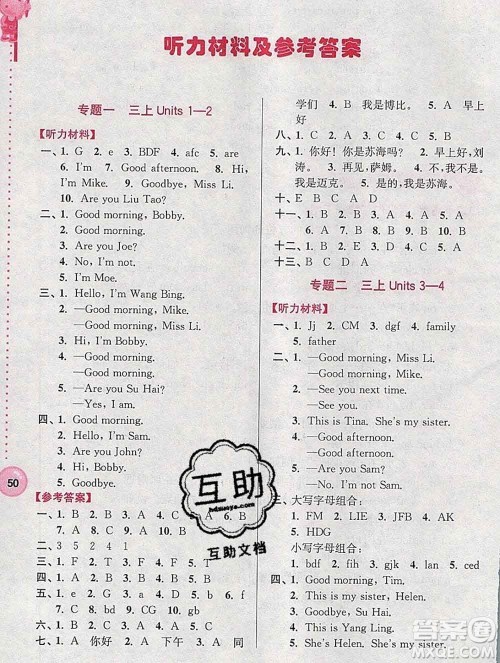 听力材料及参考答案
专题一 三上 Units 1—2
【听力材料】
一、1. G 2. e 3. BDF 4. afc 5. are
6. I'm 7. Good afternoon. 8. Hi,
I'm Mike. 9. Goodbye, Miss Li.
10. Are you Liu Tao?
二、1. Good morning, Bobby.
2. Good morning.
3. Are you Joe?
4. No, I'm not.
5. I'm Moe.
三、1. Hello, I'm Wang Bing.
2. —Good morning, Mike.
—Good morning, Miss Li.
3. Hi, I'm Bobby.
4. —Good afternoon.
—Good afternoon.
5. —Are you Su Hai?
—Yes, I am.
四、1. Good morning.
2. Hello, I'm Sam.
3. Are you John?
4. Hi, Bobby.
5. Goodbye.
【参考答案】
一、1. B 2. B 3. A 4. A 5. A 6. B
7. A 8. C 9. A 10. B
二、3 5 2 4 1
三、1. F 2. T 3. F 4. T 5. T
四、1. A 2. B 3. A 4. B 5. A
七、1. A 你好 2. A 下午 3. A 同
学们 4. B 我是博比。 5. A 早上
好
八、1. C 2. A 3. A 4. B 5. C
九、1. 你好！你是苏海吗？ 2. 早上好，刘
涛。 3. 再见，萨姆。 4. 不，我不是。
我是迈克。 5. 早上好，我是苏海。
十、E B C A D
十一、1. B 2. D 3. A 4. C 5. E
十二、1. B 2. A 3. A 4. B 5. A
十三、B D E C A
专题二 三上 Units 3—4
【听力材料】
一、1. Jj 2. CJM 3. dgf 4. family
5. father
二、1. —Good morning, Miss Li.
—Good morning.
2. —See you next time.
—See you.
3. This is Tina. She's my sister.
4. —Good afternoon.
—Good afternoon.
5. —Are you Sam?
—No, I'm not.
三、大写字母组合：
1. FM 2. LIE 3. JD 4. AK
5. HDG
小写字母组合：
1. bdf 2. fih 3. gjk 4. lan
四、1. —Good morning, Tim.
—Good morning, Helen.
2. This is Yang Ling.
3. She's Helen. She's my sister.
50
互助
hdzuoye.com
互助文档
答案圈
MXQE.COM